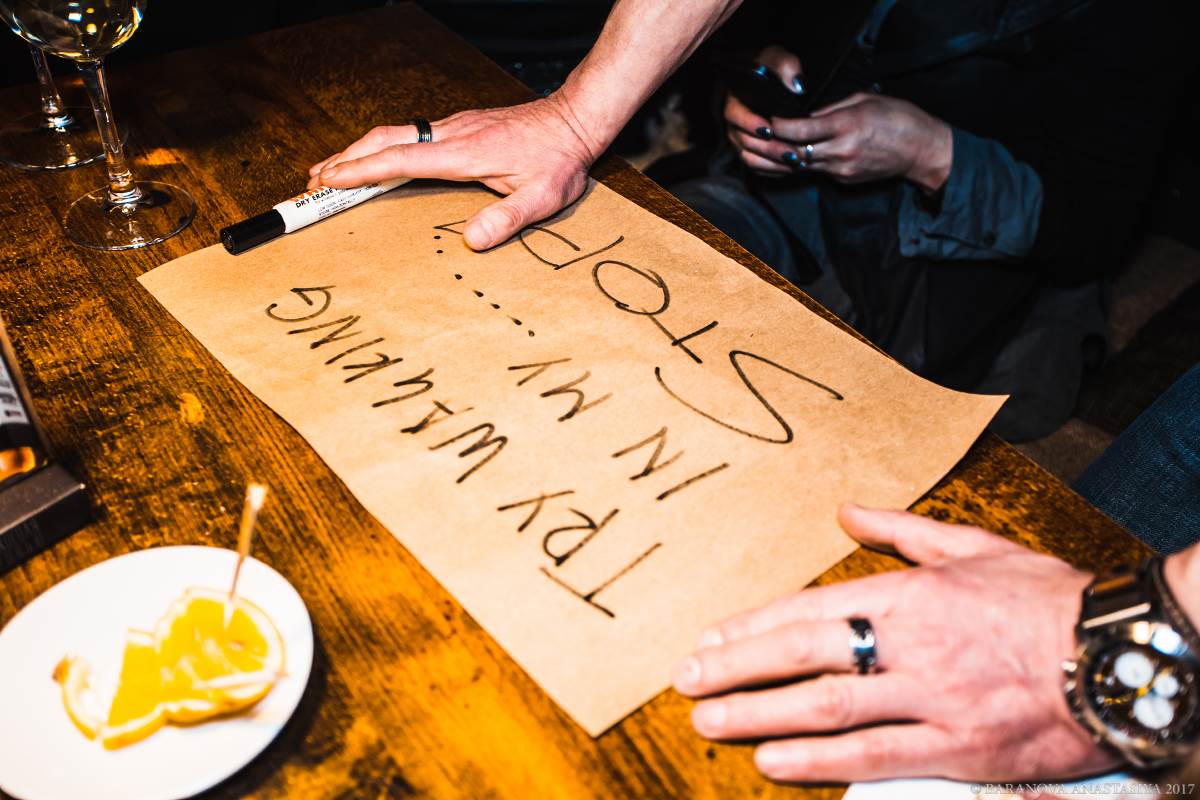 TRY WALKING
IN MY ......
STOP
DRY ERASE
© BARANOVA ANASTASIYA 2017